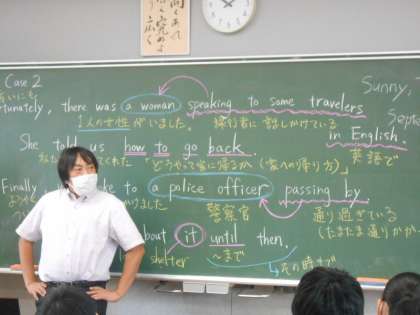 Case 2
Sunny,
Septe
tunately, there was a woman speaking to some travelers
1人の女性がいました。 旅行者に話しかけている
in English.
英語で
She told us how to go back.
くれた「どうやって家に帰るか(家への帰り方)」
Finally to a police officer passing by
けました 警察官 通り過ぎている
(たまたま通りかか
bout it until then.
shelter ～まで その時まで